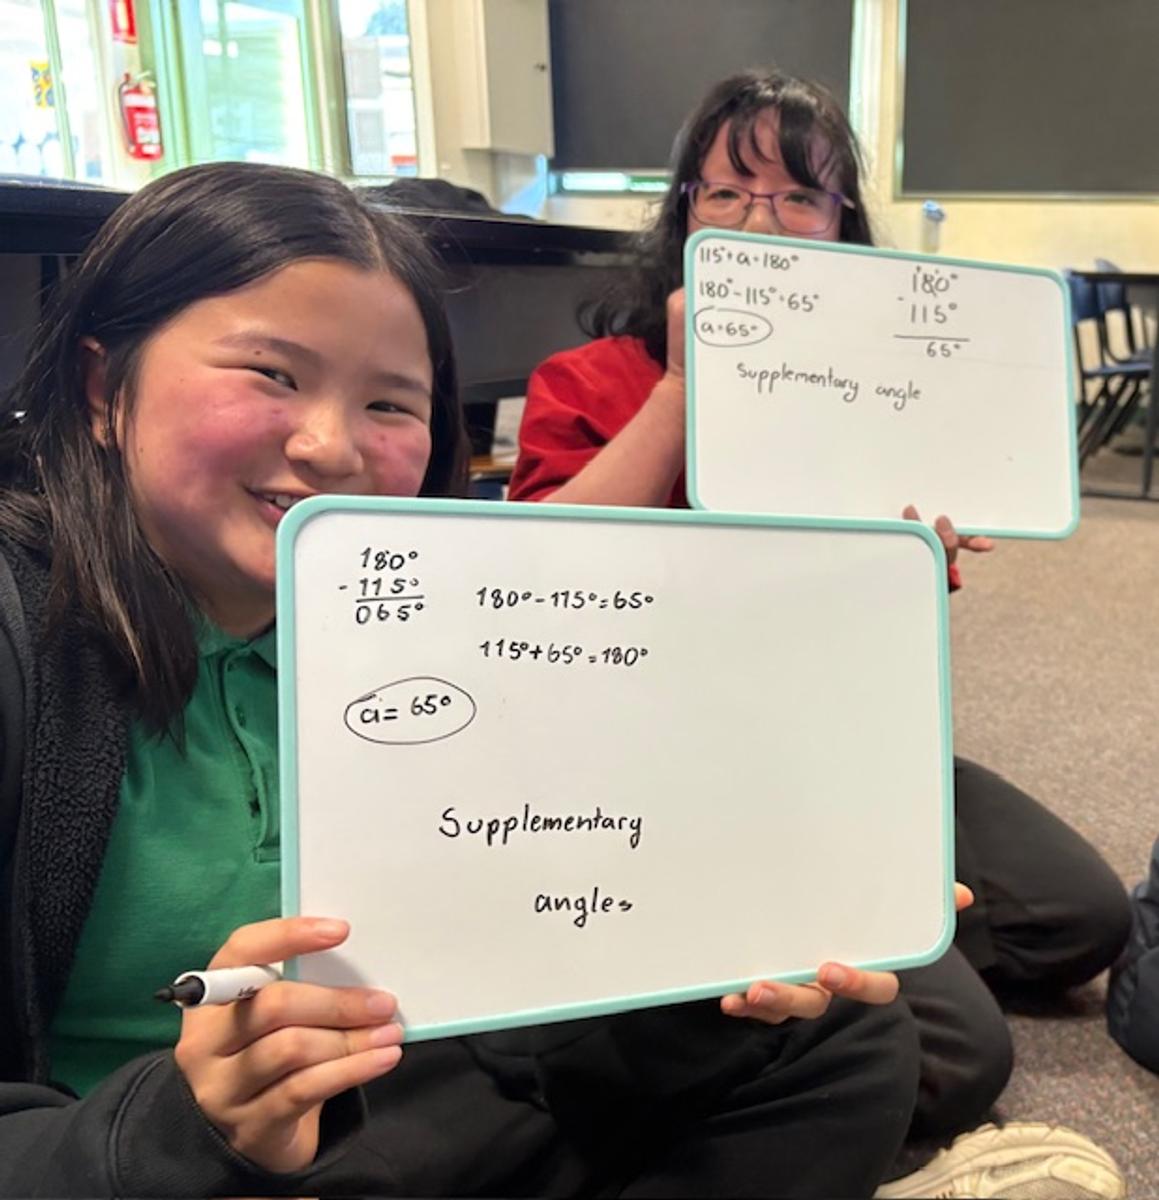 115°+a=180°
180°-115°=65°
a=65°
180°
-115°
65°
Supplementary angle
180°
-115°
065°
180°-115°=65°
115°+65°=180°
a=65°
Supplementary
angles